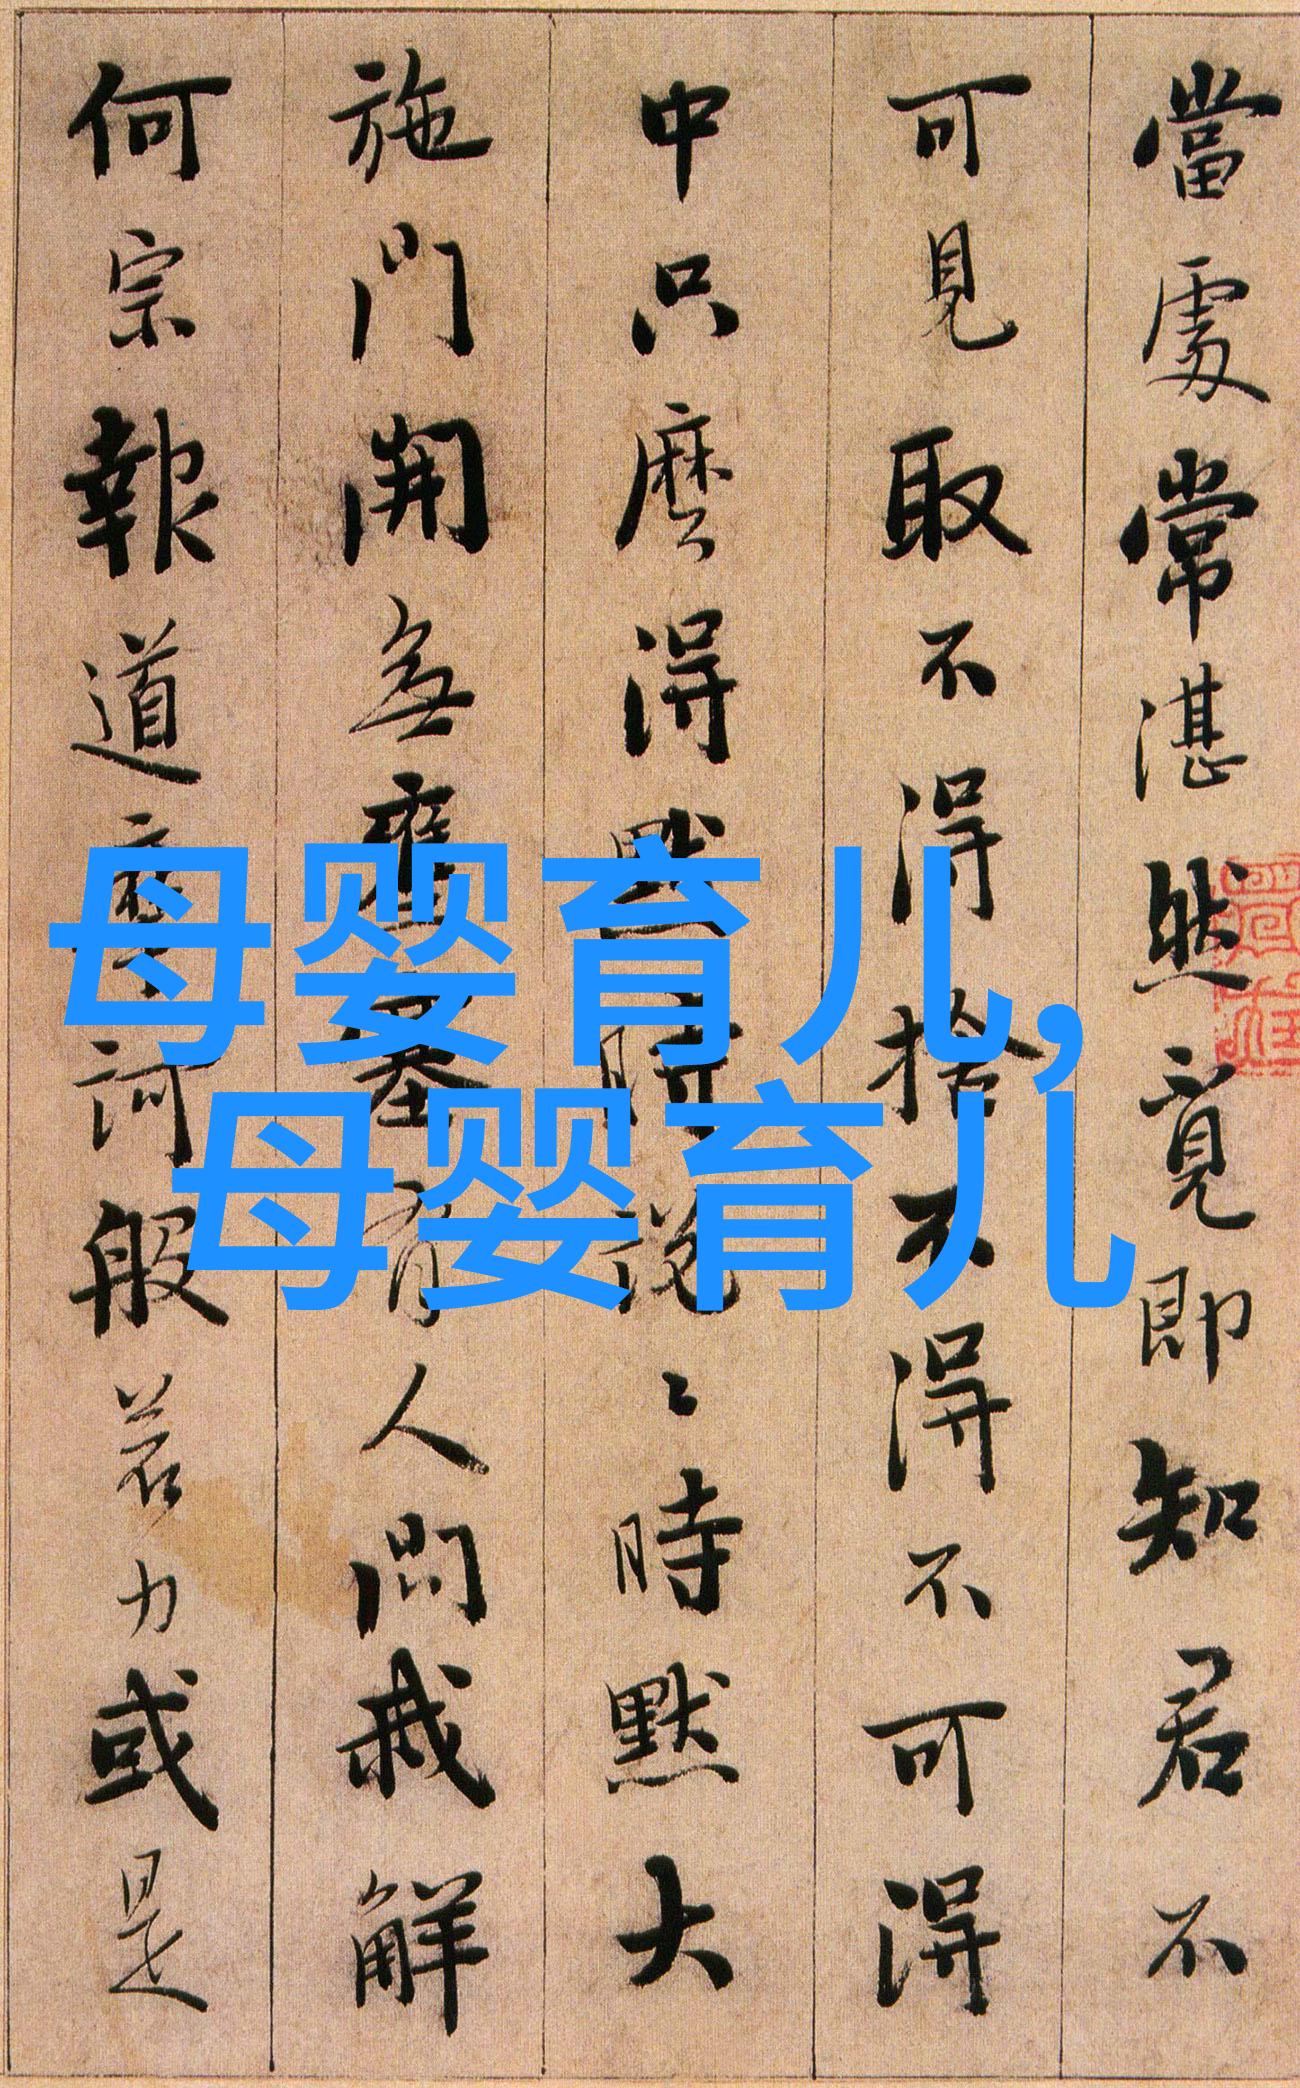 當處常湛然覓即知君不
可見取不得捨不得不可得
中只麼得默時說〻時默大
施門開無壅塞有人問我解
何宗報道摩訶般若力或是
母婴育儿,
母婴育儿